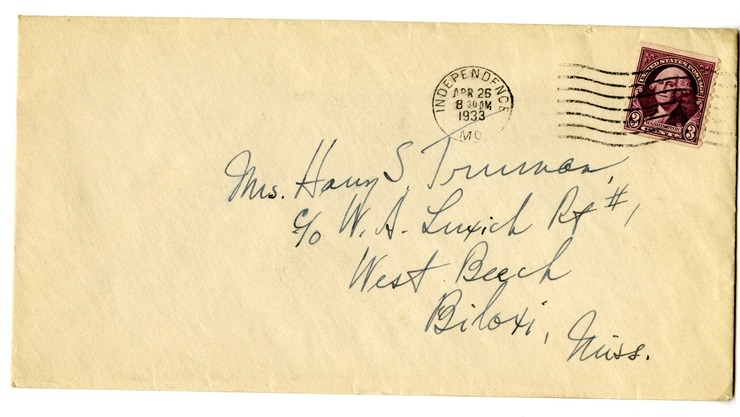 INDEPENDENCE
APR 26
8 30 AM
1933
MO
UNITED STATES POSTAGE
WASHINGTON
3 3
Mrs. Harry S. Truman,
c/o W. A. Luxich Rt #1,
West Beach
Biloxi, Miss.